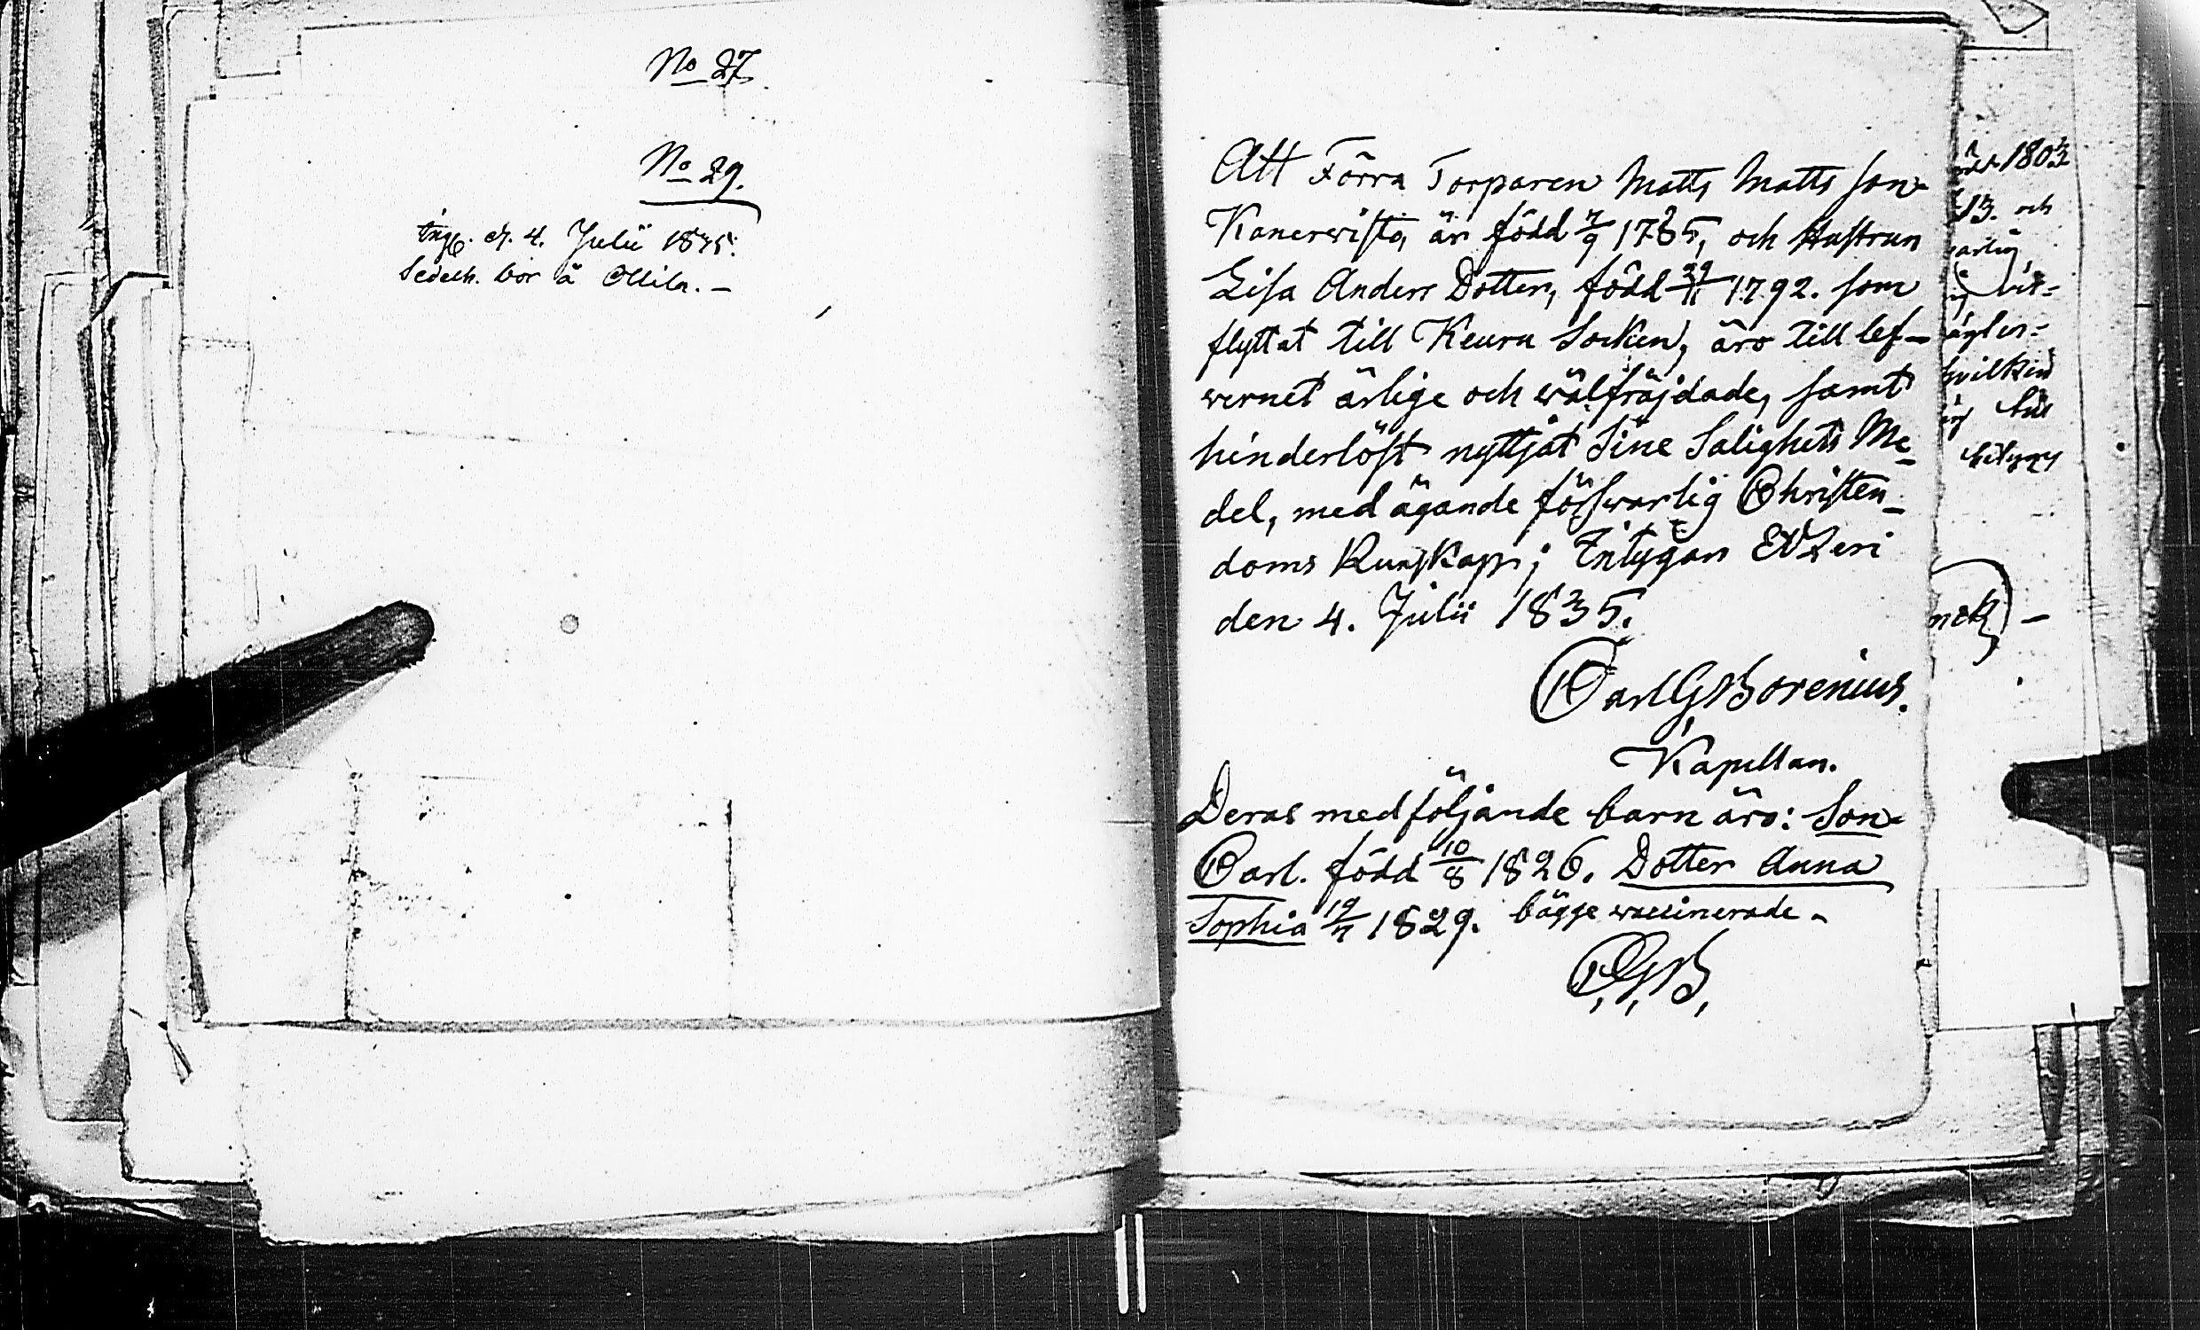 No 27
No 29.
d. 4. Julii 1835.
bor å Ollila. –
Att Förra Torparen Matts Matts son
Kanervisto, är född 7/9 1785, och Hustrun
Lisa Anders Dotter, född 29/11 1792. som
flyttat till Keuru Socken, äro till lef–
vernet ärlige och wälfräjdade, samt
hinderlöst nyttjat Sine Salighets Me–
del, med ägande försvarlig Christen–
doms Kunskap; Intygar Etzeri
den 4. Julii 1835.
Carl G Borenius.
Kapellan.
Deras medföljande barn äro: Son
Carl. född 10/8 1826. Dotter Anna
Sophia 19/7 1829. bägge vaccinerade –
C,G,B,
1803
13. och
hvilken